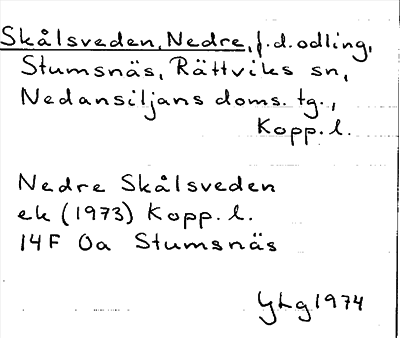 Skålsveden, Nedre, f.d. odling,
Stumsnäs, Rättviks sn,
Nedansiljans doms. tg.,
Kopp. l.
Nedre Skålsveden
ek (1973) Kopp. l.
14F 0a Stumsnäs
YLg 1974